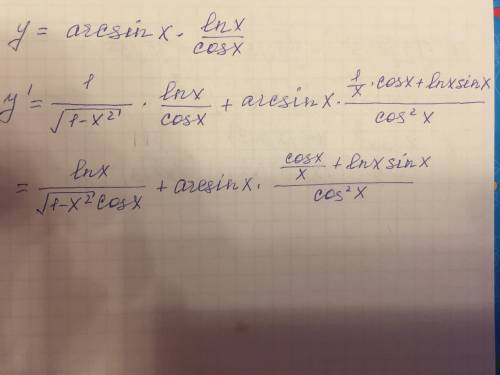 y = arcsinx · lnx/cosx
y' = 1/√(1-x²) · lnx/cosx + arcsinx · (1/x · cosx + lnxsinx)/cos²x
= lnx/(√(1-x²) cosx) + arcsinx · (cosx/x + lnxsinx)/cos²x